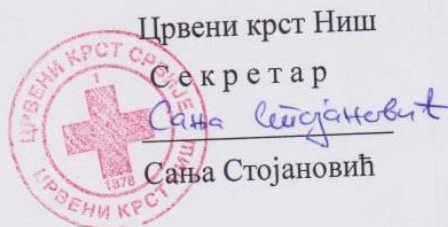 Црвени крст Ниш
Секретар
Сања Стојановић
Сања Стојановић
ЦРВЕНИ КРСТ СРБИЈЕ
1
1876
ЦРВЕНИ КРСТ НИШ